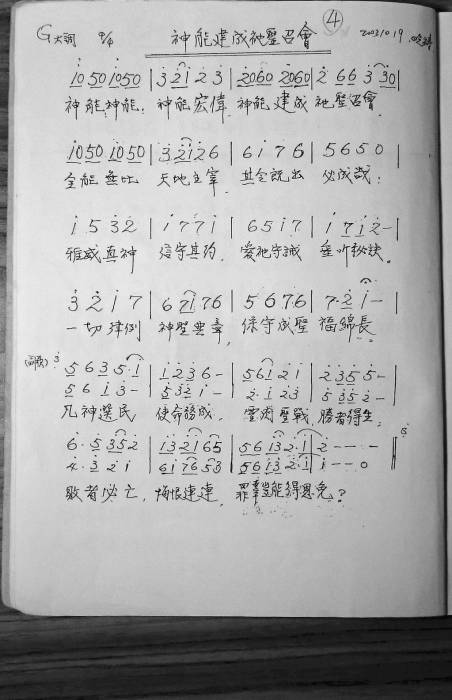 ④
G大調 4/4 神能建成祂聖召會 2003.10.19
1050 1050 | 3 2 1 2 3 | 2060 2060 | 2 66 3 30
神能,神能, 神能宏偉, 神能建成祂聖召會.
1050 1050 | 3. 2 1 2 6 | 6 1 7 6 | 5 6 5 0
全能無比 天地主宰, 其全說出 必成哉;
1 5 3 2 | 1 7 7 1 | 6 5 1 7 | 1 7 1 2 -
雅威真神 信守其約, 愛祂守誡 垂听秘訣.
3 2 1 7 | 6 7 1 7 6 | 5 6 7. 6 | 7. 2 1 -
一切律例 神聖無辜, 保守成聖 福綿長
5 6 3 5. 1 | 1 2 3 6 - | 5 6 1 2 1 | 2 3 5 5 -
5 6 1 3 - | 5 3 2 1 - | 2. 1 2 3 | 5 3 5 2 -
凡神選民 使命發成. 靈潤聖戰, 勝者得生.
6. 5 3 5 2 | 1 3 2 1 6 5 | 5 6 1 3 2. 1 | 2 - - -
4. 3 2 1 | 6 1 7 6 5 3 | 5 6 1 3 2. 1 | 1 - - 0
敗者必亡, 悔恨連連, 罪辜豈能得恩免?